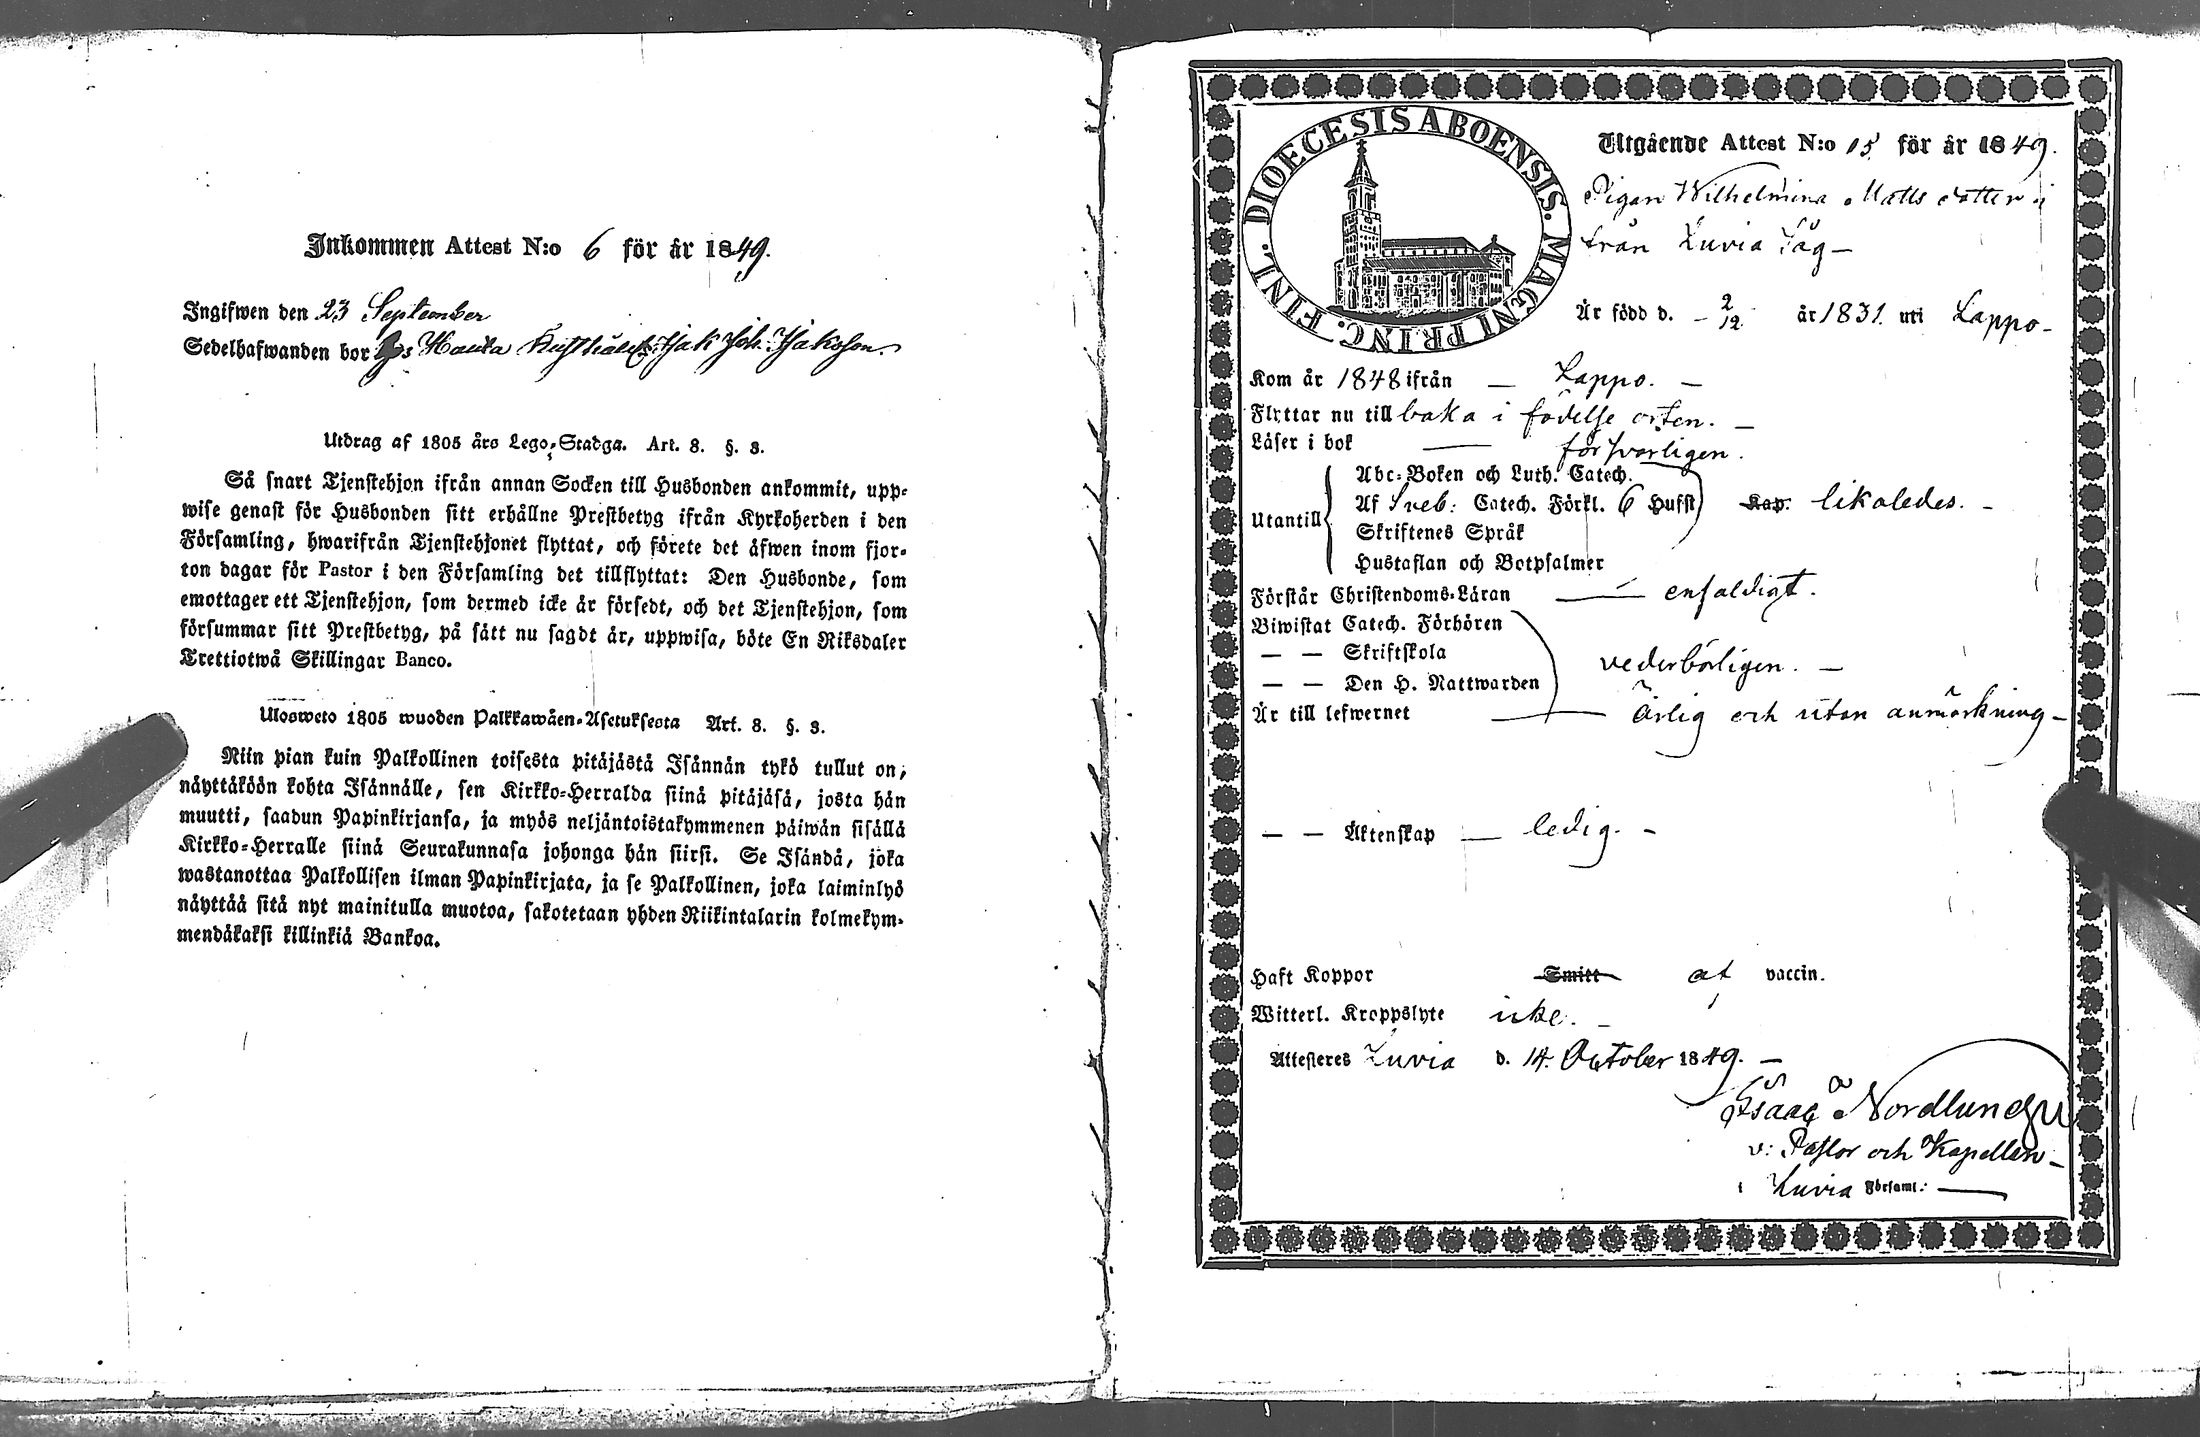 Inkommen Attest N:o 6 för år 1849.
Ingifwen den 23 September
Sedelhafwanden bor hos Jak Joh. Jakobson.
Utdrag af 1805 års Lego-Stadga. Art. 8. §. 3.
Så snart Tjenstehjon ifrån annan Socken till Husbonden ankommit, upp-
wise genast för Husbonden sitt erhållne Prestbetyg ifrån Kyrkoherden i den
Församling, hwarifrån Tjenstehjonet flyttat, och förete det äfwen inom fjor-
ton dagar för Pastor i den Församling det tillflyttat: Den Husbonde, som
emottager ett Tjenstehjon, som dermed icke är försedt, och det Tjenstehjon, som
försummar sitt Prestbetyg, på sätt nu sagdt är, uppwisa, böte En Riksdaler
Trettiotwå Skillingar Banco.
Ulosweto 1805 wuoden Palkkawäen-Asetuksesta Art. 8. §. 3.
Niin pian kuin Palkollinen toisesta pitäjästä Isännän tykö tullut on,
näyttäköön kohta Isännälle, sen Kirkko-Herralda siinä pitäjäsä, josta hän
muutti, saadun Papinkirjansa, ja myös neljäntoistakymmenen päiwän sisällä
Kirkko-Herralle siinä Seurakunnasa johonga hän siirsi. Se Isändä, joka
wastanottaa Palkollisen ilman Papinkirjata, ja se Palkollinen, joka laiminlyö
näyttää sitä nyt mainitulla muotoa, sakotetaan yhden Riikintalarin kolmekym-
mendäkaksi killinkiä Bankoa.
DIOECESIS ABOENSIS. MAGNI PRINC. FINL.
Utgående Attest N:o 15 för år 1849.
Pigan Wilhelmina Matts dotter
från Luvia Såg –
Är född d. – 2/12 år 1831. uti Lappo –
Kom år 1848 ifrån — Lappo. —
Flyttar nu till baka i födelse orten. —
Läser i bok — försvarligen.
Utantill
Abc-Boken och Luth. Catech.
Af Sveb: Catech. Förkl. 6 Hufst Kap. likaledes. –
Skriftenes Språk
Hustaflan och Botpsalmer
Förstår Christendoms-Läran — enfaldigt.
Biwistat Catech. Förhören
— — Skriftskola vederbörligen. —
— — Den H. Nattwarden
Är till lefwernet — ärlig och utan anmärkning –
— — Äktenskap — ledig. –
Haft Koppor Smitt af vaccin.
Witterl. Kroppslyte icke. –
Attesteras Luvia d. 14. October 1849. —
Isaac Nordlund
v: Pastor och Kapellan –
i Luvia Församl: —